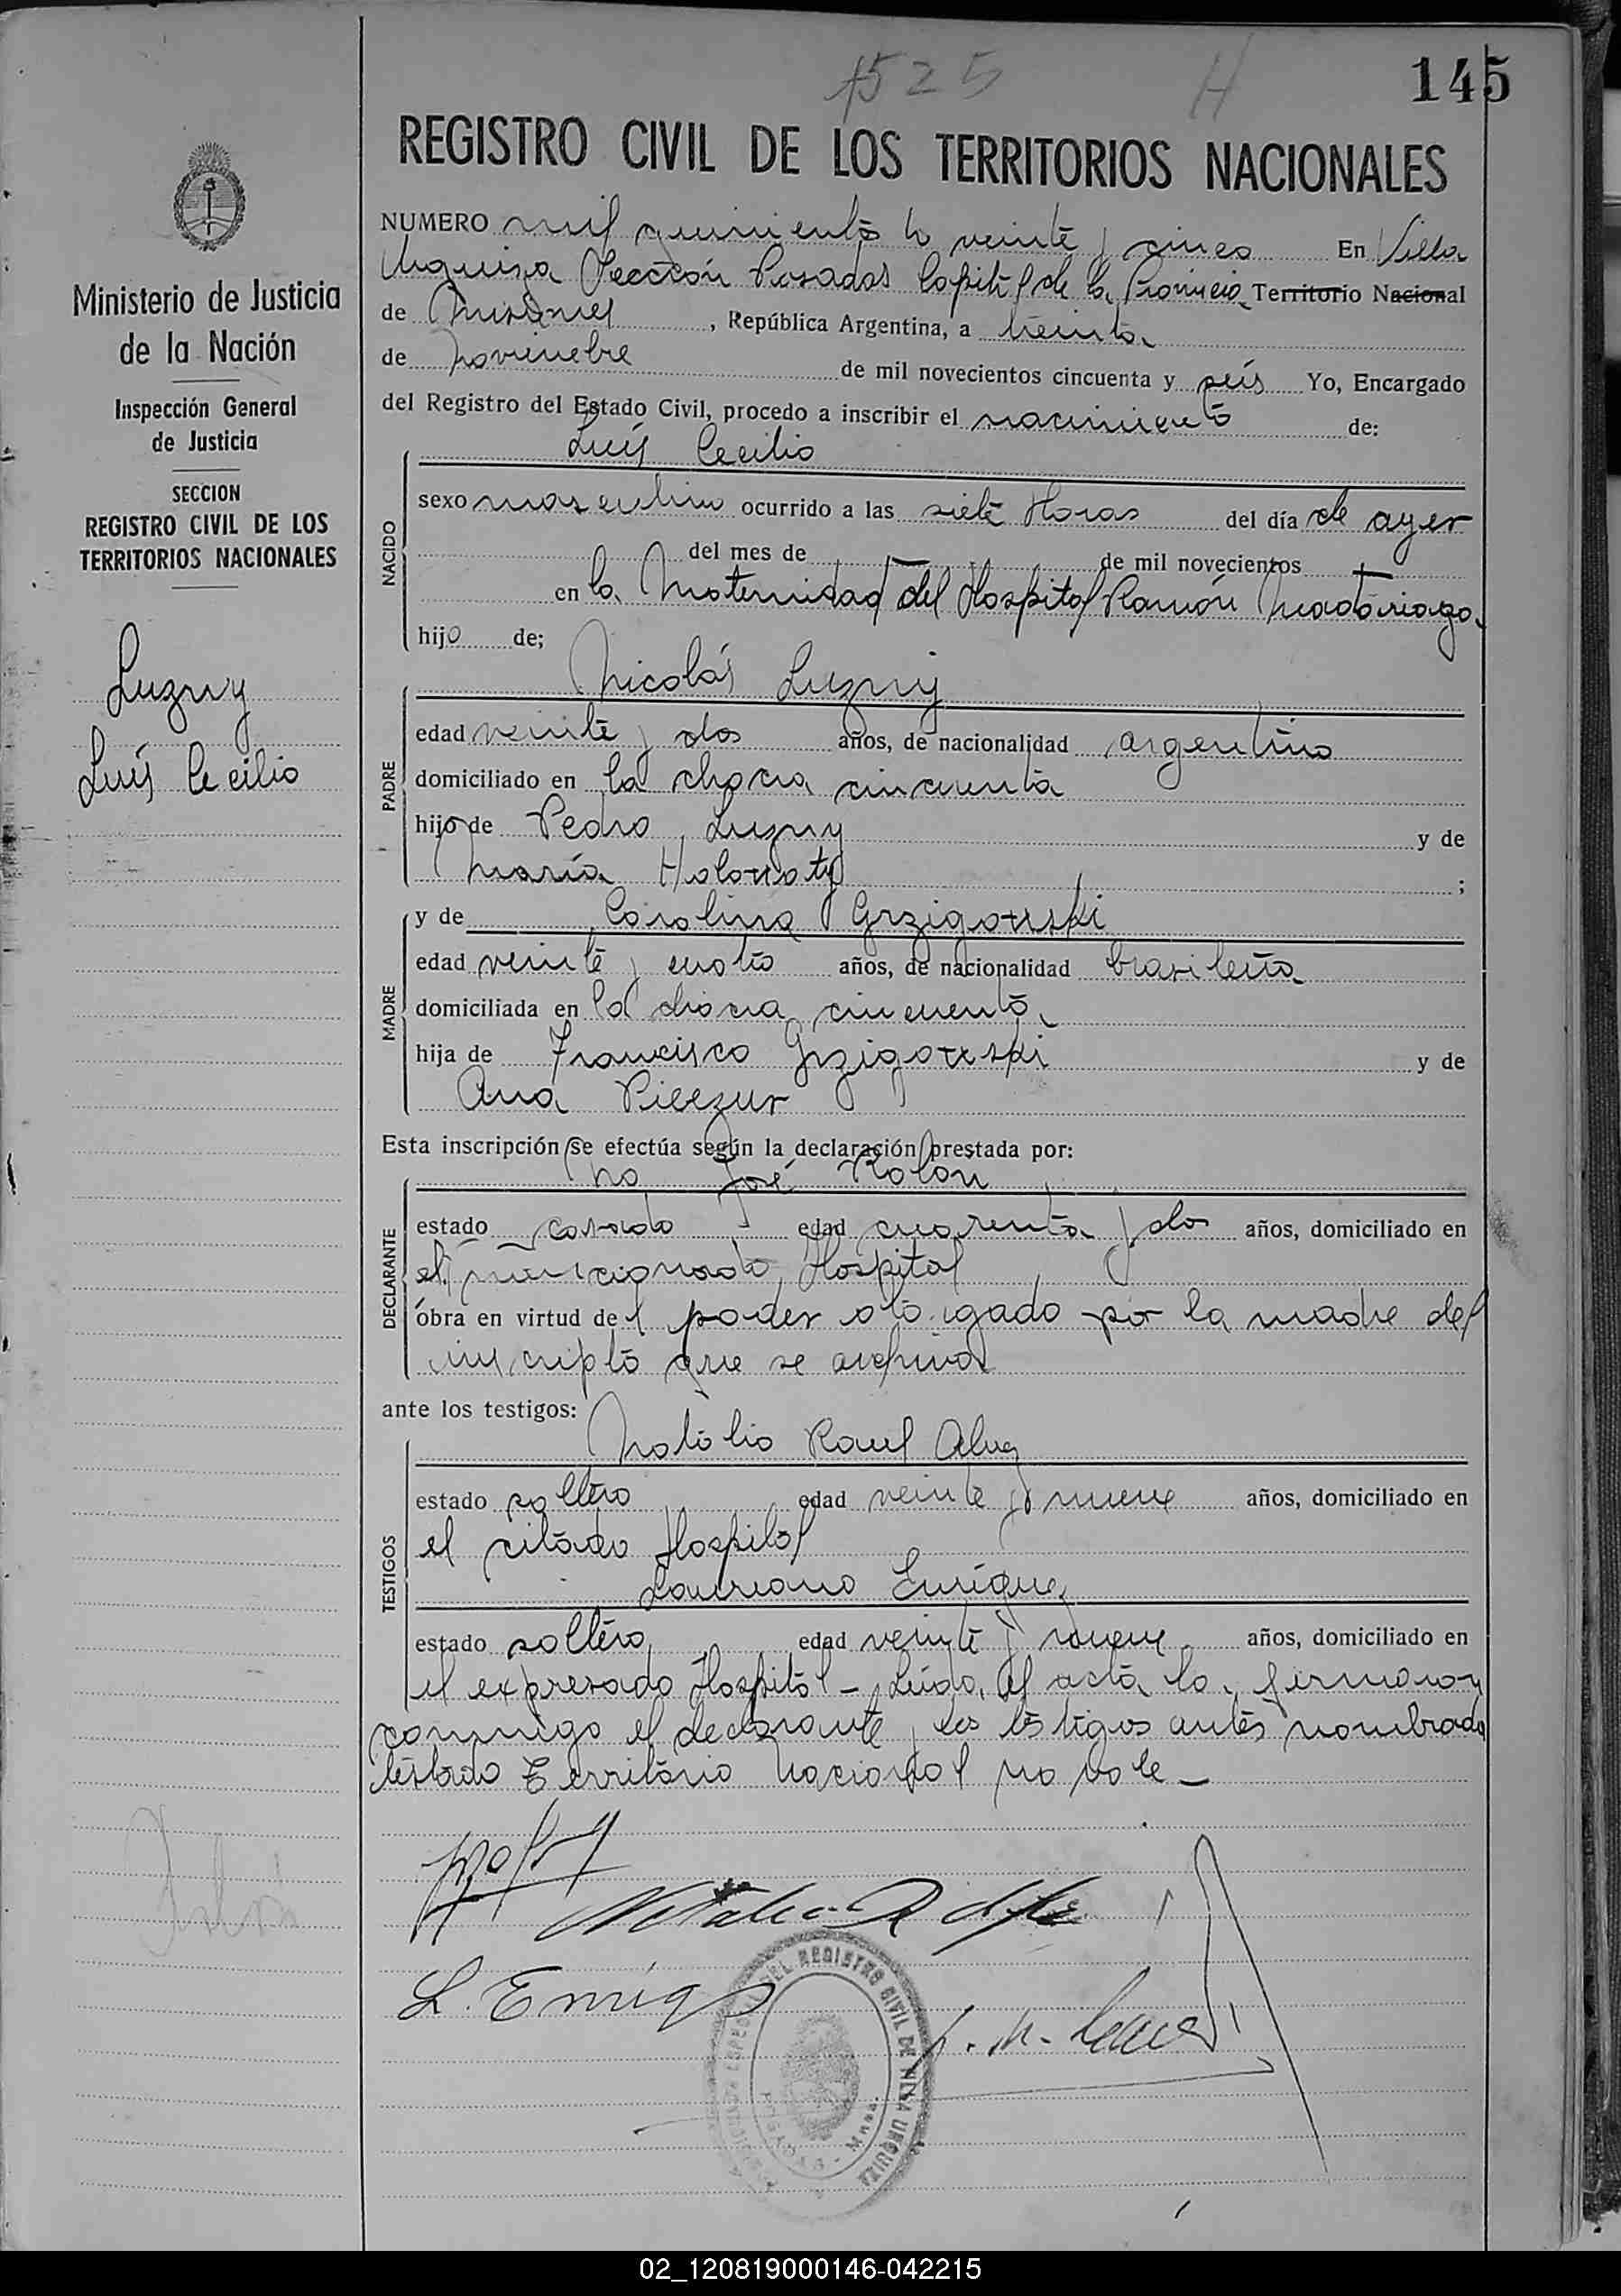 1525 H 145
REGISTRO CIVIL DE LOS TERRITORIOS NACIONALES
Ministerio de Justicia
de la Nación
Inspección General
de Justicia
SECCION
REGISTRO CIVIL DE LOS
TERRITORIOS NACIONALES
Luzny
Luís Cecilio
NUMERO mil quinientos veinte y cinco En Villa
Urquiza Sección Posadas Capital de la Provincia Territorio Nacional
de Misiones, República Argentina, a treinta
de noviembre de mil novecientos cincuenta y seis Yo, Encargado
del Registro del Estado Civil, procedo a inscribir el nacimiento de:
Luís Cecilio
NACIDO
sexo masculino ocurrido a las siete Horas del día de ayer
del mes de de mil novecientos
en la Maternidad del Hospital Ramón Madariaga
hijo de;
Nicolás Luzny
PADRE
edad veinte y dos años, de nacionalidad argentino
domiciliado en la chacra cincuenta
hijo de Pedro Luzny y de
María Holowaty ;
y de Carolina Grzigowski
MADRE
edad veinte y cuatro años, de nacionalidad brasileña
domiciliada en la chacra cincuenta
hija de Francisco Grzigowski y de
Ana Pieczur
Esta inscripción se efectúa según la declaración prestada por:
José Rolon
DECLARANTE
estado casado edad cuarenta y dos años, domiciliado en
el mencionado Hospital
obra en virtud del poder otorgado por la madre del
inscripto que se archiva
ante los testigos:
Natalio Raul Alvez
TESTIGOS
estado soltero edad veinte y nueve años, domiciliado en
el citado Hospital
Laureano Enriquez
estado soltero edad veinte y nueve años, domiciliado en
el expresado Hospital - Leída el acta la firmaron
conmigo el declarante y los testigos antes nombrados
testado Territorio Nacional no vale -
L. Enriq
DEL REGISTRO CIVIL DE VILLA URQUIZA
POSADAS - Mnes.
02_120819000146-042215